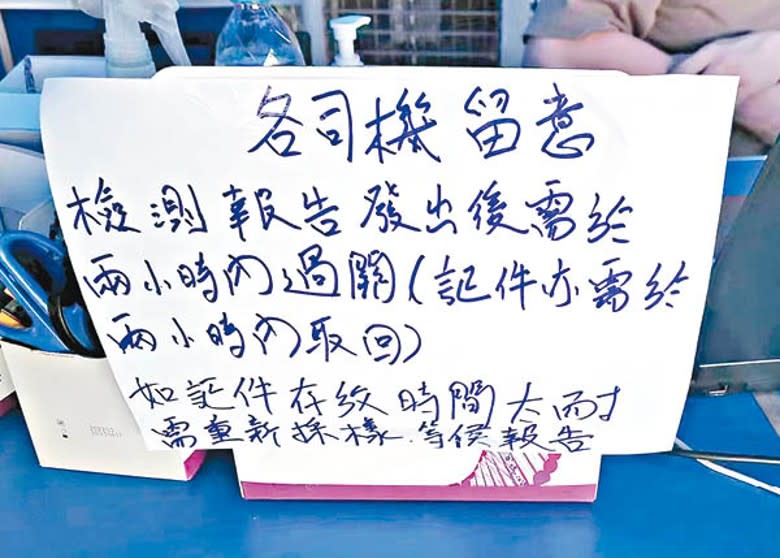 各司機留意
檢測報告發出後需於
兩小時內過關(証件亦需於
兩小時內取回)
如証件存放時間太耐
需重新採樣.等侯報告